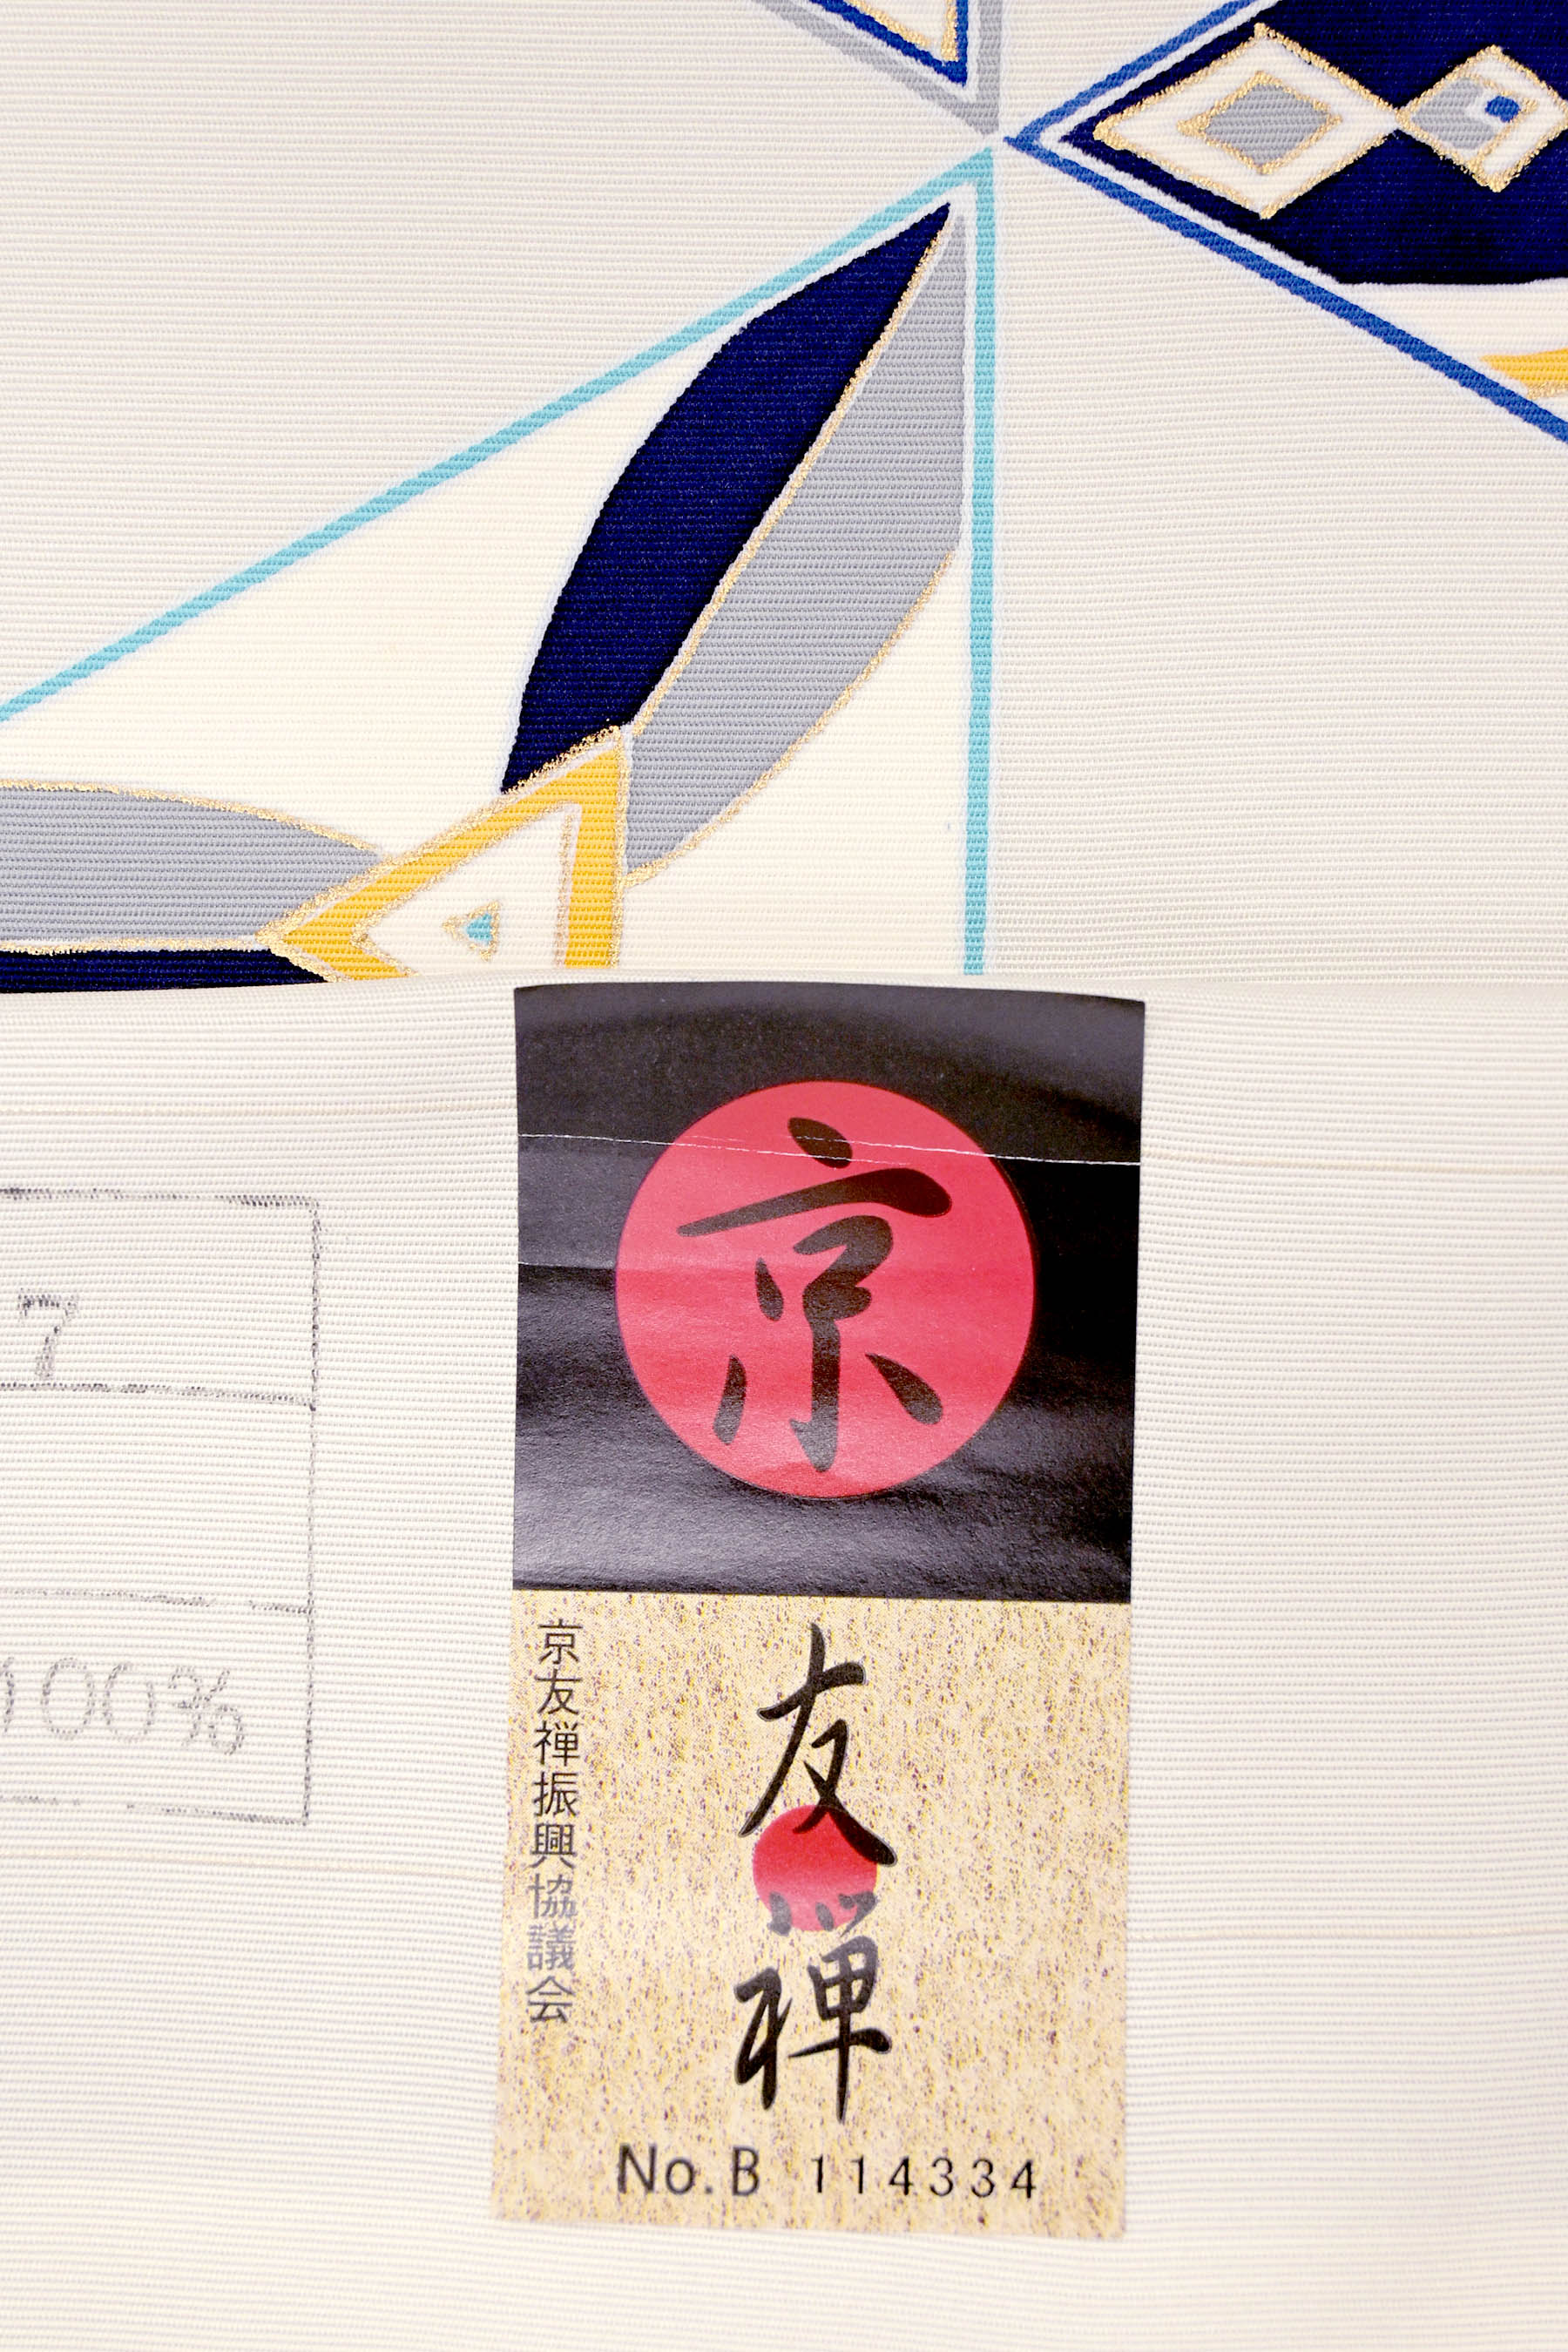 京
友禅
京友禅振興協議会
No.B 114334
7
100%